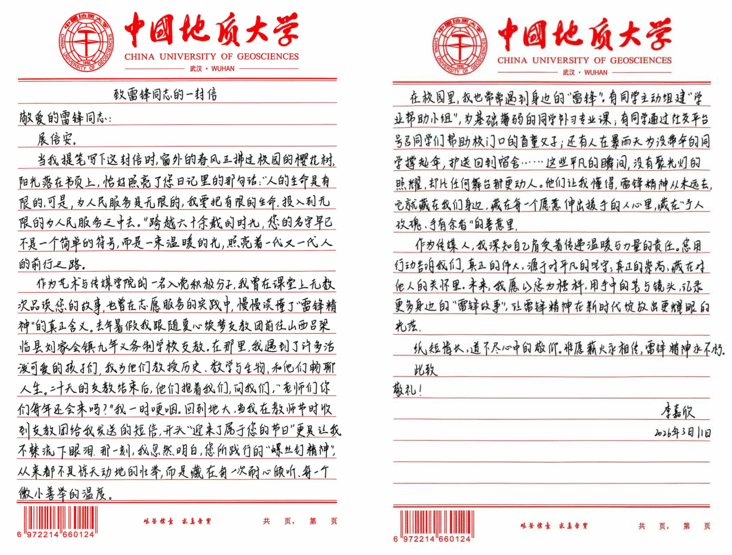 中国地质大学
CHINA UNIVERSITY OF GEOSCIENCES
武汉·WUHAN
致雷锋同志的一封信
敬爱的雷锋同志:
展信安。
当我提笔写下这封信时,窗外的春风正拂过校园的樱花树,
阳光落在书页上,恰好照亮了您日记里的那句话:“人的生命是有
限的,可是,为人民服务是无限的,我要把有限的生命,投入到无
限的为人民服务之中去。”跨越六十余载的时光,您的名字早已
不是一个简单的符号,而是一束温暖的光,照亮着一代又一代人
的前行之路。
作为艺术与传媒学院的一名入党积极分子,我曾在课堂上无数
次品读您的故事,也曾在志愿服务的实践中,慢慢读懂了“雷锋精
神”的真正含义。去年暑假我跟随夏心爱带支教团前往山西吕梁
临县刘家会镇九年义务制学校支教。在那里,我遇到了许多活
泼可爱的孩子们,我为他们教授历史、数学与生物,和他们畅聊
人生。二十天的支教结束后,他们抱着我们,问我们,“老师们你
们每年还会来吗?”我一时哽咽。回到地大,当我在教师节时收
到支教团给我发送的短信,开头“迎来了属于您的节日”更是让我
不禁流下眼泪。那一刻,我忽然明白,您所践行的“螺丝钉精神”,
从来都不是惊天动地的壮举,而是藏在每一次耐心倾听、每一个
微小善举的温度。
6 972214 660124
艰苦朴素 求真务实
共 页, 第 页
中国地质大学
CHINA UNIVERSITY OF GEOSCIENCES
武汉·WUHAN
在校园里,我也常常遇到身边的“雷锋”。有同学主动组建“学
业帮助小组”,为基础薄弱的同学补习专业课,有同学通过社交平台
号召同学们帮助校门口的盲童父子;还有人在暴雨天为没带伞的同
学撑起伞,护送回到宿舍……这些平凡的瞬间,没有聚光灯的
照耀,却比任何舞台都更动人。他们让我懂得,雷锋精神从未远去,
它就藏在我们身边,藏在每一个愿意伸出援手的人心里,藏在“予人
玫瑰,手有余香”的善意里。
作为传媒人,我深知自己肩负着传递温暖与力量的责任。您用
行动告诉我们,真正的伟大,源于对平凡的坚守,真正的崇高,藏在对
他人的关怀里。未来,我愿以您为榜样,用手中的笔与镜头,记录
更多身边的“雷锋故事”,让雷锋精神在新时代绽放出更耀眼的
光芒.
纸短情长,道不尽心中的敬仰。惟愿薪火永相传,雷锋精神永不朽.
此致
敬礼!
李嘉欣
2026年3月11日
6 972214 660124
艰苦朴素 求真务实
共 页, 第 页